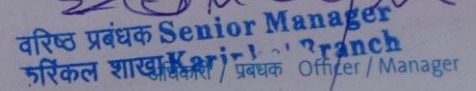 वरिष्ठ प्रबंधक Senior Manager
करिंकल शाखा Branch
अधिकारी / प्रबंधक Officer / Manager